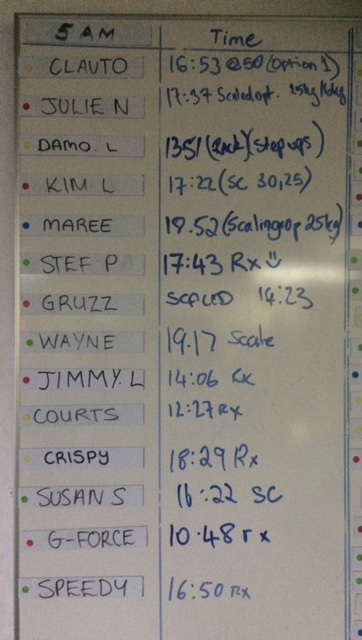 5 AM Time
CLAUTO 16:53 @50 (Option 1)
JULIE N 17:37 Scaled opt. 25kg
DAMO. L 1351 (Rack) (Step ups)
KIM L 17:22 (SC 30,25)
MAREE 18.52 (Scaling op 25kg)
STEF P 17:43 Rx
GRUZZ SCALED 14:23
WAYNE 19.17 Scale
JIMMY. L 14:06 RX
COURTS 12:27 Rx
CRISPY 18:29 Rx
SUSAN S 16:22 SC
G-FORCE 10.48 rx
SPEEDY 16:50 Rx